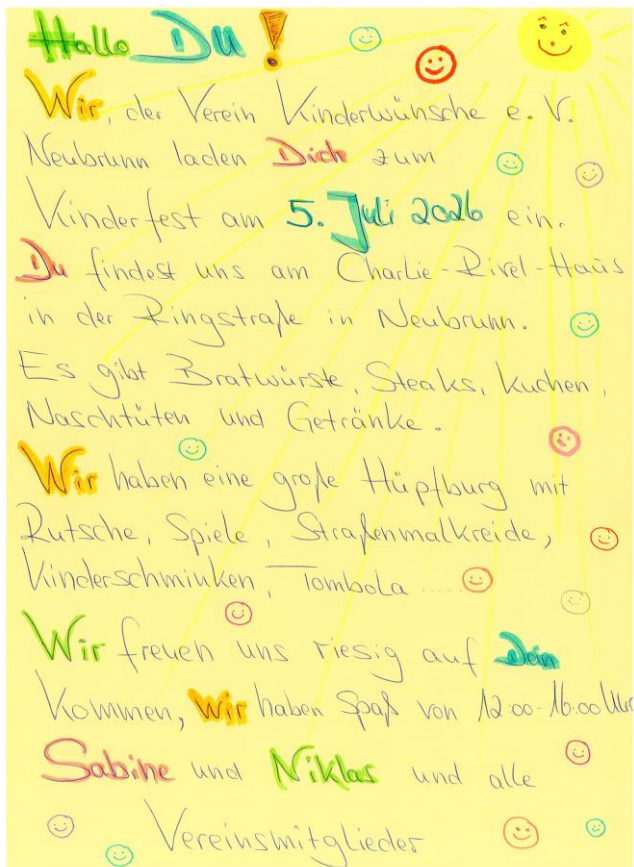 Hallo Du!
Wir, der Verein Kinderwünsche e. V.
Neubrunn laden Dich zum
Kinderfest am 5. Juli 2026 ein.
Du findest uns am Charlie-Rivel-Haus
in der Ringstraße in Neubrunn.
Es gibt Bratwürste, Steaks, Kuchen,
Naschtüten und Getränke.
Wir haben eine große Hüpfburg mit
Rutsche, Spiele, Straßenmalkreide,
Kinderschminken, Tombola .....
Wir freuen uns riesig auf Dein
Kommen, Wir haben Spaß von 12:00-16:00 Uhr
Sabine und Niklas und alle
Vereinsmitglieder